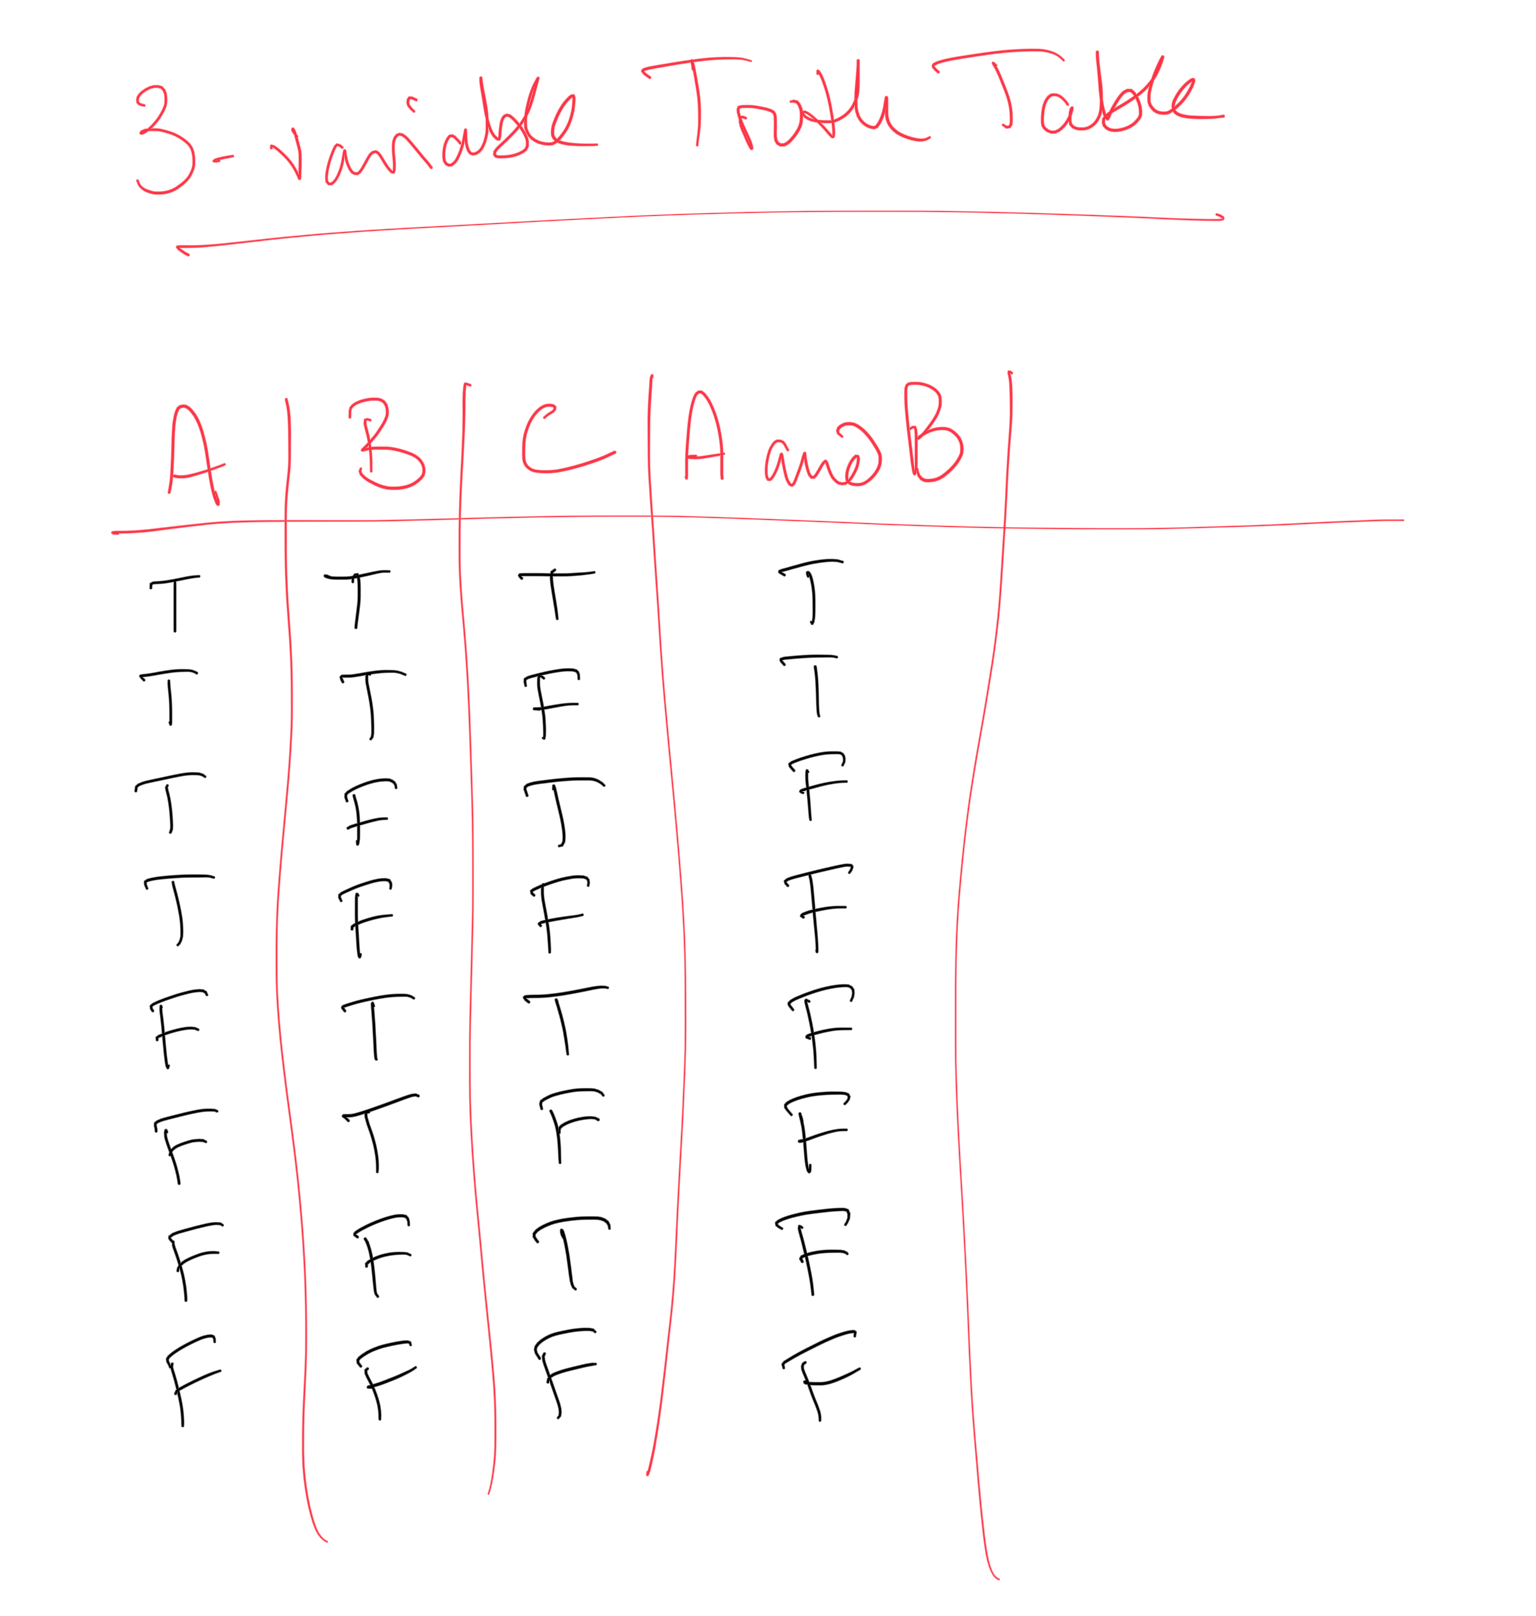 3-variable Truth Table
A B C A and B
T T T T
T T F T
T F T F
T F F F
F T T F
F T F F
F F T F
F F F F